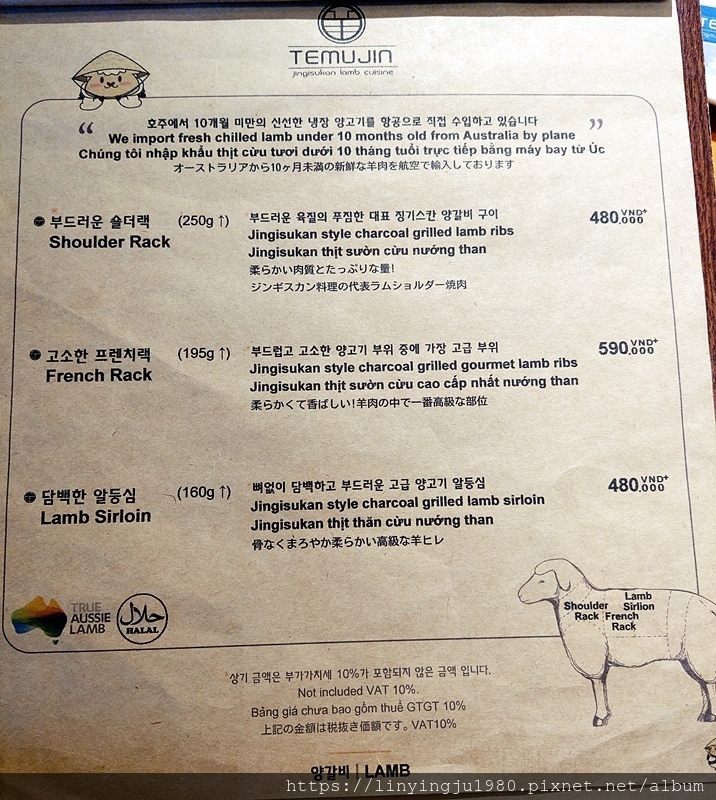 TEMUJIN
jingisukan lamb cuisine
“ 호주에서 10개월 미만의 신선한 냉장 양고기를 항공으로 직접 수입하고 있습니다 ”
We import fresh chilled lamb under 10 months old from Australia by plane
Chúng tôi nhập khẩu thịt cừu tươi dưới 10 tháng tuổi trực tiếp bằng máy bay từ Úc
オーストラリアから10ヶ月未満の新鮮な羊肉を航空で輸入しております
부드러운 숄더랙 (250g ↑) 부드러운 육질의 푸짐한 대표 징기스칸 양갈비 구이 480.000 VND+
Shoulder Rack Jingisukan style charcoal grilled lamb ribs
Jingisukan thịt sườn cừu nướng than
柔らかい肉質とたっぷりな量!
ジンギスカン料理の代表ラムショルダー焼肉
고소한 프렌치랙 (195g ↑) 부드럽고 고소한 양고기 부위 중에 가장 고급 부위 590.000 VND+
French Rack Jingisukan style charcoal grilled gourmet lamb ribs
Jingisukan thịt sườn cừu cao cấp nhất nướng than
柔らかくて香ばしい!羊肉の中で一番高級な部位
담백한 알등심 (160g ↑) 뼈없이 담백하고 부드러운 고급 양고기 알등심 480.000 VND+
Lamb Sirloin Jingisukan style charcoal grilled lamb sirloin
Jingisukan thịt thăn cừu nướng than
骨なくまろやか柔らかい高級な羊ヒレ
TRUE
AUSSIE
LAMB
حلال
HALAL
Shoulder
Rack
French
Rack
Lamb
Sirlion
상기 금액은 부가가치세 10%가 포함되지 않은 금액 입니다.
Not included VAT 10%.
Bảng giá chưa bao gồm thuế GTGT 10%
上記の金額は税抜き価額です。VAT10%
양갈비 | LAMB
https://linyingju1980.pixnet.net/album